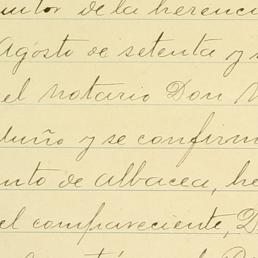 de la herenci
Agosto de setenta y s
el notario Don
duño y se confirm
nto de albacea, he
el compareciente, D